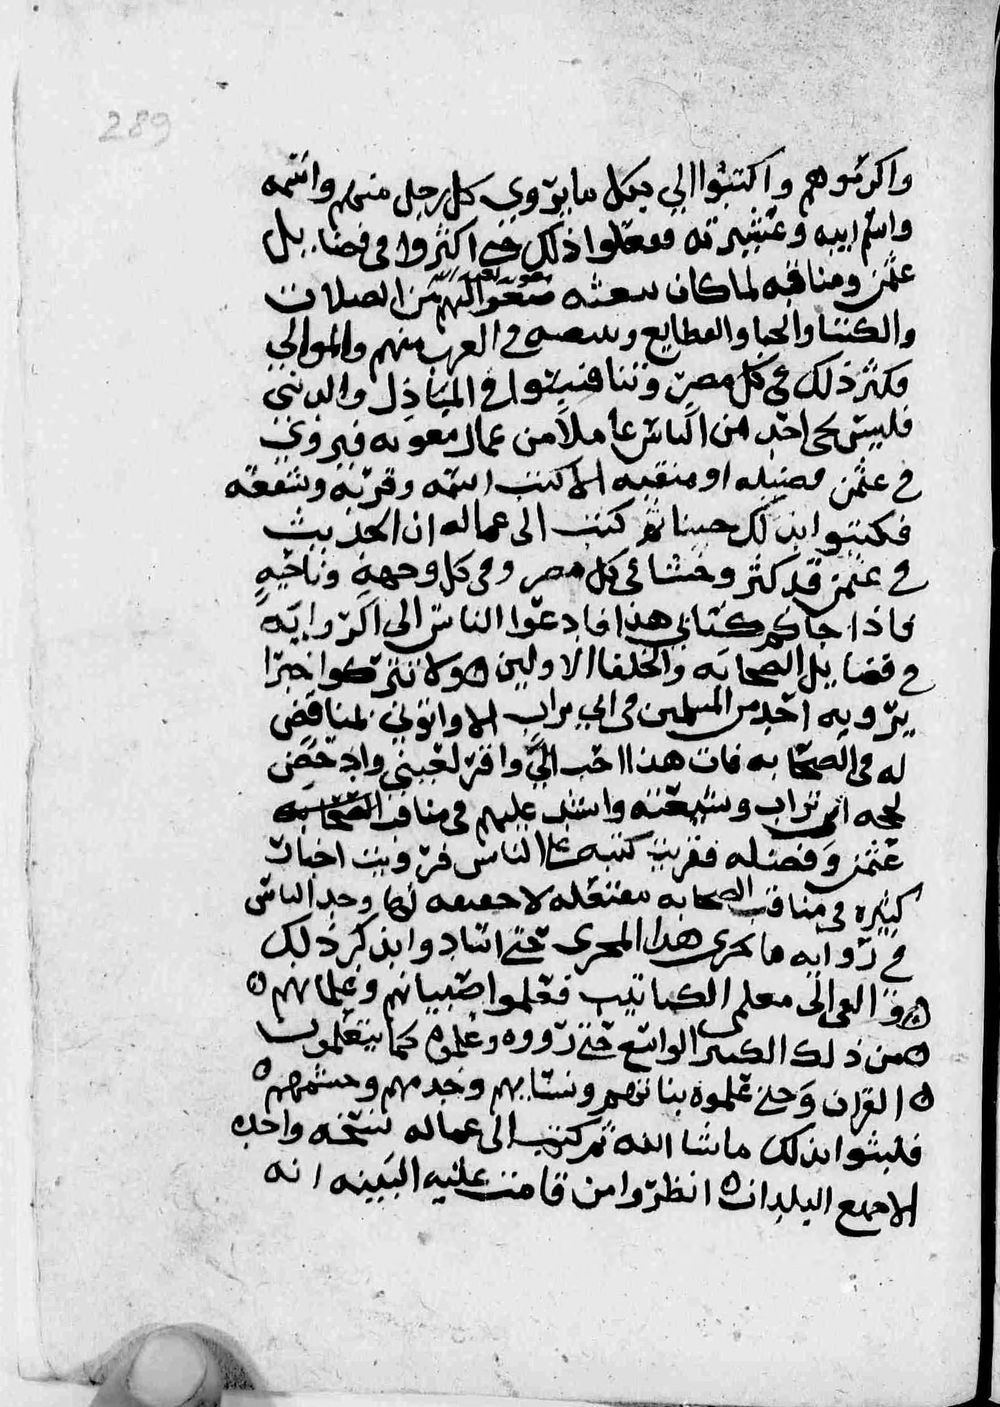 289
واكرموهم واكتبوا الي بكل ما يروي كل رجل منهم واسمه
واسم ابيه وعشيرته ففعلوا ذلك حتى اكثروا في فضايل
عثمن ومناقبه لما كان يبعثه معوية اليهم من الصلات
والكسا والحبا والقطايع ويفيضه في العرب منهم والموالي
فكثر ذلك في كل مصر وتنافسوا في المنازل والدنيا
فليس يجي احد من الناس عاملا من عمال معويه فيروي
في عثمن فضيله او منقبه الا كتب اسمه وقربه وشفعه
فلبثوا بذلك حينا ثم كتب الى عماله ان الحديث
في عثمن قد كثر وفشا في كل مصر وفي كل وجهة وناحية
فاذا جاكم كتابي هذا فادعوا الناس الى الروايه
في فضايل الصحابه والخلفا الاولين ولا تتركوا خبرا
يرويه احد من المسلمين في ابي تراب الا واتوني بمناقض
له في الصحابه فان هذا احب الي واقر لعيني وادحض
لحجه ابي تراب وشيعته واشد عليهم في مناقب الصحابه
عثمن وفضله فقريت كتبه على الناس فرويت اخبار
كثيره في مناقب الصحابه مفتعله لا حقيقه لها وجد الناس
في روايه ما يجري هذا المجرى حتى اشادوا بذكر ذلك
والقي الى معلمي الكتاتيب فعلموا صبيانهم وغلمانهم
من ذلك الكثير الواسع حتى رووه وعلموه كما يتعلمون
القران وحتى علموه بناتهم ونسايهم وخدمهم وحشمهم
فلبثوا بذلك ما شا الله ثم كتب الى عماله نسخه واحده
الا جميع البلدان انظروا من قامت عليه البينه انه